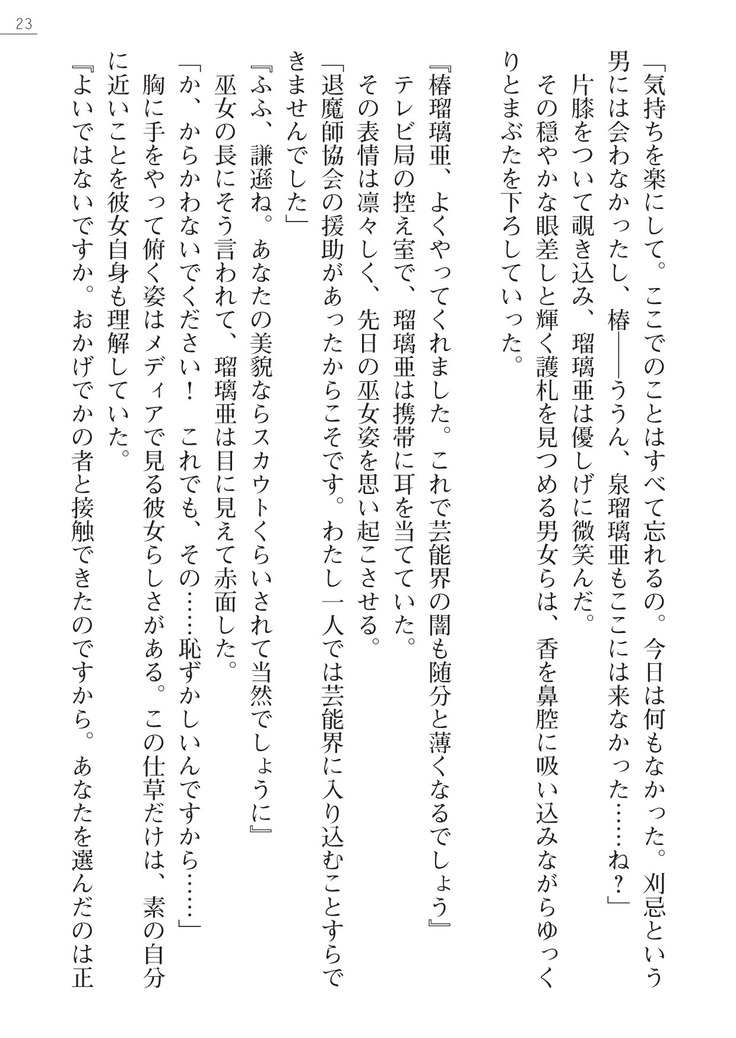 23
「気持ちを楽にして。ここでのことはすべて忘れるの。今日は何もなかった。刈忌という
男には会わなかったし、椿――ううん、泉瑠璃亜もここには来なかった……ね？」
片膝をついて覗き込み、瑠璃亜は優しげに微笑んだ。
その穏やかな眼差しと輝く護札を見つめる男女らは、香を鼻腔に吸い込みながらゆっく
りとまぶたを下ろしていった。
『椿瑠璃亜、よくやってくれました。これで芸能界の闇も随分と薄くなるでしょう』
テレビ局の控え室で、瑠璃亜は携帯に耳を当てていた。
その表情は凛々しく、先日の巫女姿を思い起こさせる。
「退魔師協会の援助があったからこそです。わたし一人では芸能界に入り込むことすらで
きませんでした」
『ふふ、謙遜ね。あなたの美貌ならスカウトくらいされて当然でしょうに』
巫女の長にそう言われて、瑠璃亜は目に見えて赤面した。
「か、からかわないでください！　これでも、その……恥ずかしいんですから……」
胸に手をやって俯く姿はメディアで見る彼女らしさがある。この仕草だけは、素の自分
に近いことを彼女自身も理解していた。
『よいではないですか。おかげでかの者と接触できたのですから。あなたを選んだのは正